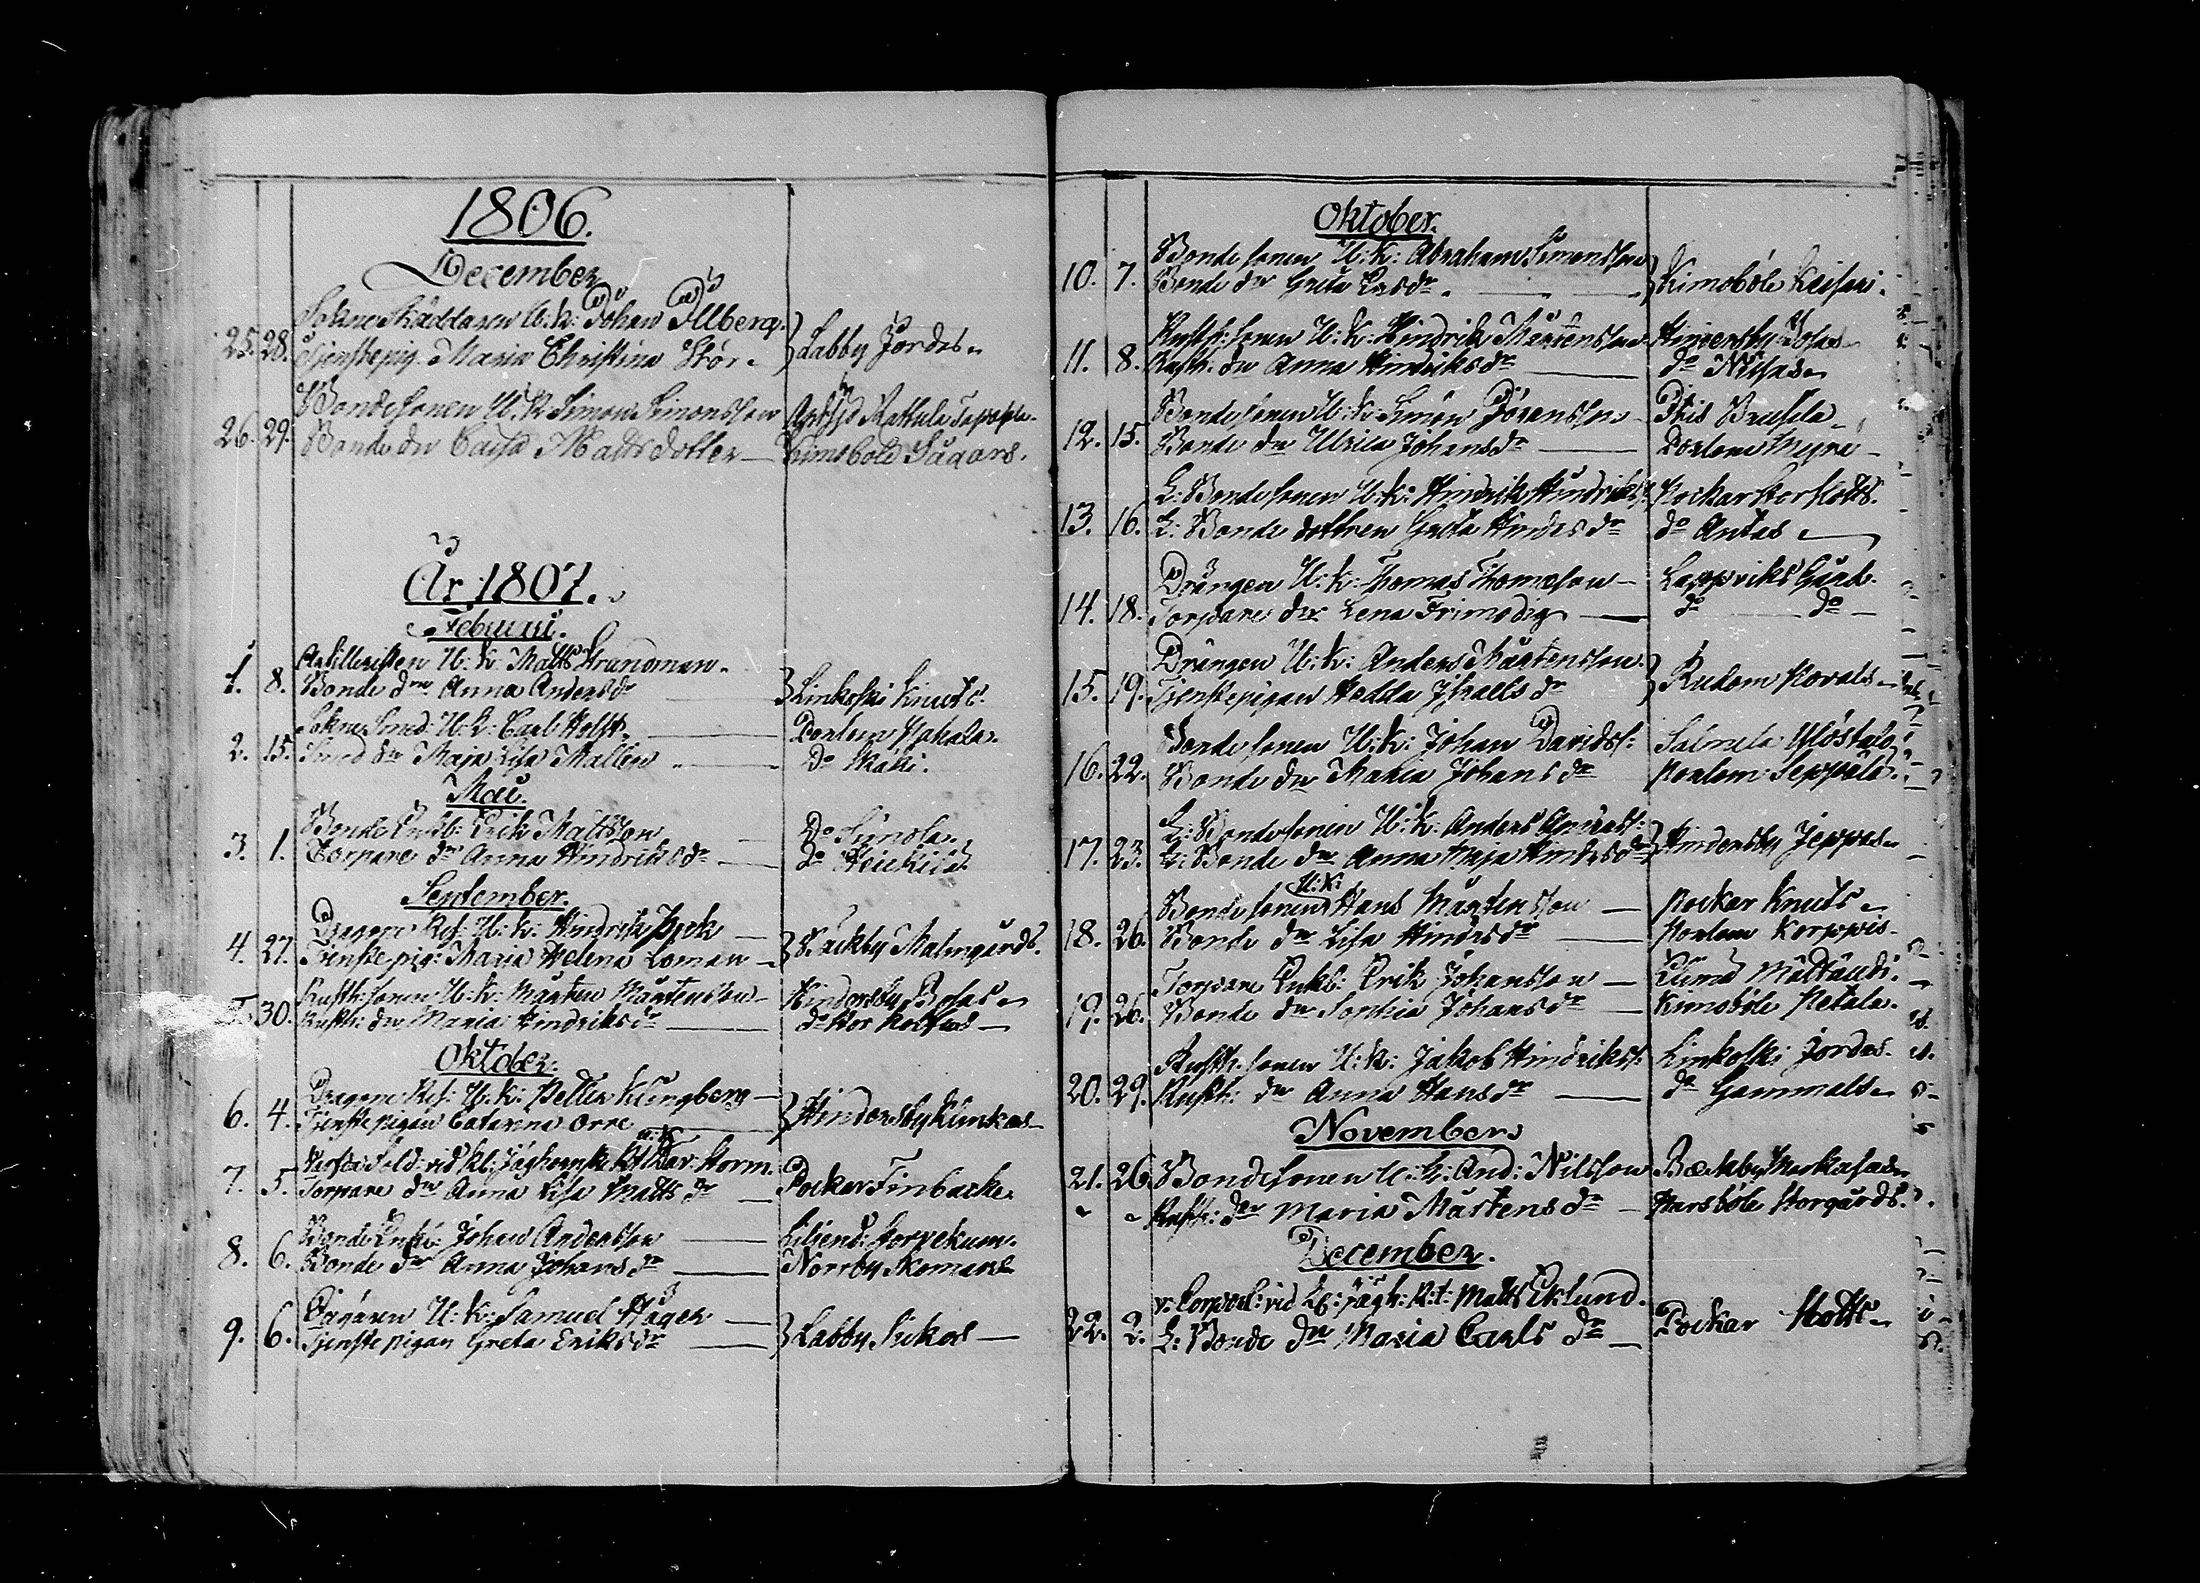 1806.
December
25. 28. Sokne Skäddaren U: K: Johan Illberg.
Tjenstepig. Maria Christina Stör
Labby Jordes
26. 29. Bondesonen U: K Simon Simonsson
Bonde dr Caisa Matts dotter
Kimoböle Sågars.
År 1807.
Februari.
1. 8. Artilleristen U: K: Matts Strandman.
Bonde dr Anna Anders dr
Linkoski Knuts.
2. 15. Sokne Smed: U: K: Carl Holst.
Smed dr Maja Lisa Mallén
Porlom Yckala.
Do Mäki.
Maii.
3. 1. Bonde Enkl: Erik Mattsson
Torpare dr Anna Hindriks dr
Do
Do Heickilä
September.
4. 27. Dragon Ref: U: K: Hindrik
Tienste pig: Maria Helena Loman
Säckby Malmgårds.
5. 30. Rusth: sonen U: K: Mårten Mårtensson
Rusth: dr Maria Hindriks dr
Hindersby Bosas
do
Oktober.
6. 4. Dragon Ref: U: K: Petter Klingberg
Tienste pigan Catarina Orre
Hindersby Klinkas
7. 5. Värfvad Sold: vid Kl: Jäghornska Rt U: K: Dav: Storm.
Torpare dr Anna Lisa Matts dr
Pockar Finbacka
8. 6. Bonde Enkl: Johan Andersson
Bonde dr Anna Johans dr
Liljend: Sorvekum.
Norrby Skomars
9. 6. U: K: Samuel Häger
Tjenste pigan Greta Eriks dr
Labby Sukas
Oktober.
10. 7. Bonde sonen U: K: Abraham Simonsson
Bonde dr Greta Lars dr
Kimoböle Keisari.
11. 8. Rusth: sonen U: K: Hindrik Mårtensson
Rusth: dr Anna Hindriks dr
Hindersby Bosas
do Nisas
12. 15. Bonde sonen U: K: Simon Jöransson
Bonde dr Ulrica Johans dr
Porlom Myrä
13. 16. L: Bonde sonen U: K: Hindrik Hindrikss:
L: Bonde dottren Greta Hindrs dr
Pockar Storstotts.
do Antas
14. 18. Drängen U: K: Thomas Thomasson
Torpare dr Lena Frimodig
Lappviks Gård.
do do
15. 19. Drängen U: K: Anders Mårtensson.
Tjenstepigan Hedda Israels dr
Rudom Kovals
16. 22. Bonde sonen U: K: Johan Davidss:
Bonde dr Maria Johans dr
Salmela Ylöstalo
Porlom: Seppälä.
17. 23. L: Bondesonen U: K: Anders Anderss:
L: Bonde dr Anna Maja Hindrs dr
Hindersby Jeppas
18. 26. Bonde sonen U: K: Hans Mårtensson
Bonde dr Lisa Hindrs dr
Pockar Knuts
Porlom Korppis
19. 26. Torpare Enkl: Erik Johansson
Bonde dr Sophia Johans dr
Kimoböle Petala.
20. 29. Rusth: sonen U: K: Jakob Hindrikss:
Rusth: dr Anna Hans dr
Linkoski Jordas.
do Gammals
November
21. 26. Bonde sonen U: K: And: Nilsson
Rusth: dr Maria Mårtens dr
Bäckby Markasas
Harsböle Storgårds.
December.
22. 2. v: Corporl: vid Kl: Jägh: R:t: Matts Eklund.
L: Bonde dr Maria Carls dr
Pockar Stotts